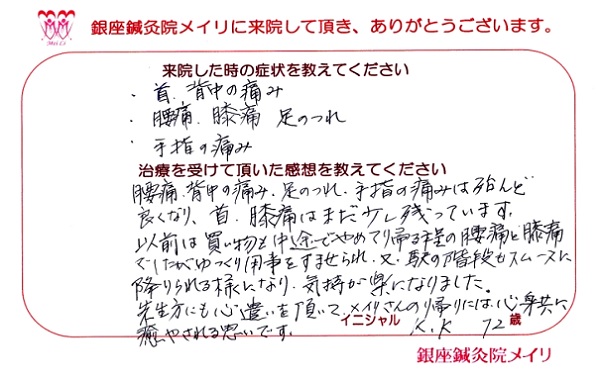 Mei Li
銀座鍼灸院メイリに来院して頂き、ありがとうございます。
来院した時の症状を教えてください
・首、背中の痛み
・腰痛、膝痛 足のつれ
・手指の痛み
治療を受けて頂いた感想を教えてください
腰痛、背中の痛み、足のつれ、手指の痛みは殆んど
良くなり、首、膝痛はまだ少し残っています。
以前は買い物も中途でやめて帰る程の腰痛と膝痛
でしたがゆっくり用事をすませられ、又、駅の階段もスムースに
降りられる様になり、気持が楽になりました。
先生方にも心遣いを頂いて、メイリさんの帰りには、心身共に
癒やされる思いです。
イニシャル K.K 72歳
銀座鍼灸院メイリ